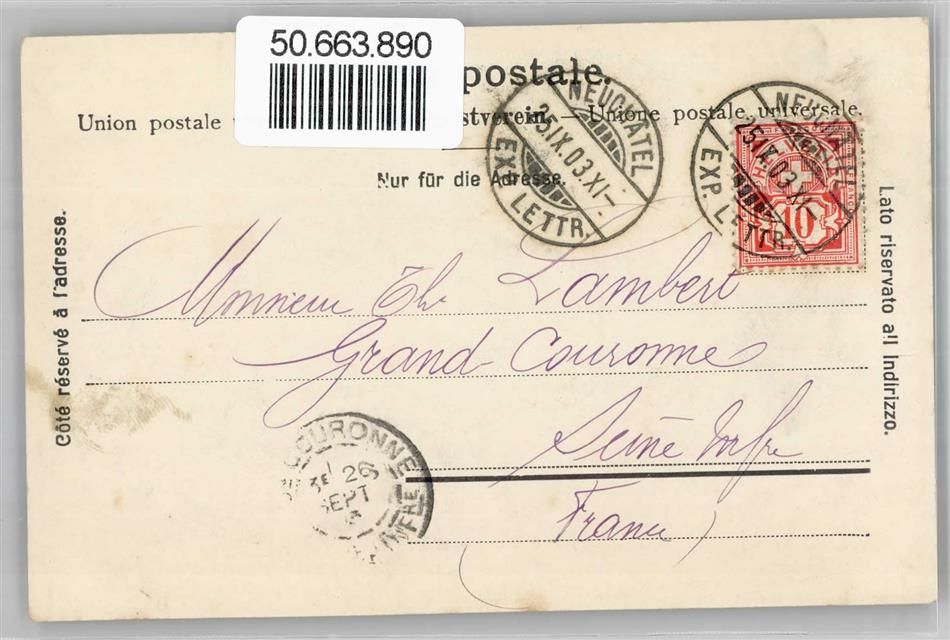 50.663.890
postale.
Union postale
stverein. — Unione postale universale.
NEUCHATEL
25.IX.03.XI–
EXP. LETTR.
NEUCHATEL
25.IX.03.XI–
EXP. LETTR.
10
Nur für die Adresse.
Côté réservé à l'adresse.
Lato riservato all Indirizzo.
Monsieur Th Lambert
Grand-Couronne
Seine Infre
France
COURONNE
26
SEPT
INFRE